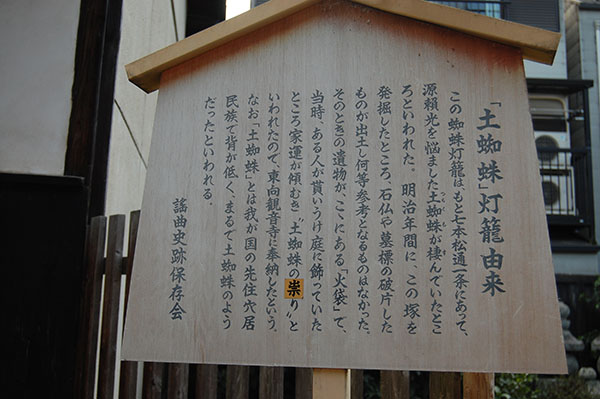 「土蜘蛛」灯籠由来
この蜘蛛灯籠は、もと七本松通一条にあって、
源頼光を悩ました土蜘蛛が棲んでいたとこ
ろといわれた。明治年間に、この塚を
発掘したところ石仏や墓標の破片した
ものが出土し何等参考となるものはなかった。
そのときの遺物が、こゝにある「火袋」で、
当時、ある人が貰いうけ庭に飾っていた
ところ家運が傾むき〝土蜘蛛の祟り〟と
いわれたので、東向観音寺に奉納したという。
なお「土蜘蛛」とは我が国の先住穴居
民族で背が低く、まるで土蜘蛛のよう
だったといわれる。
謡曲史跡保存会